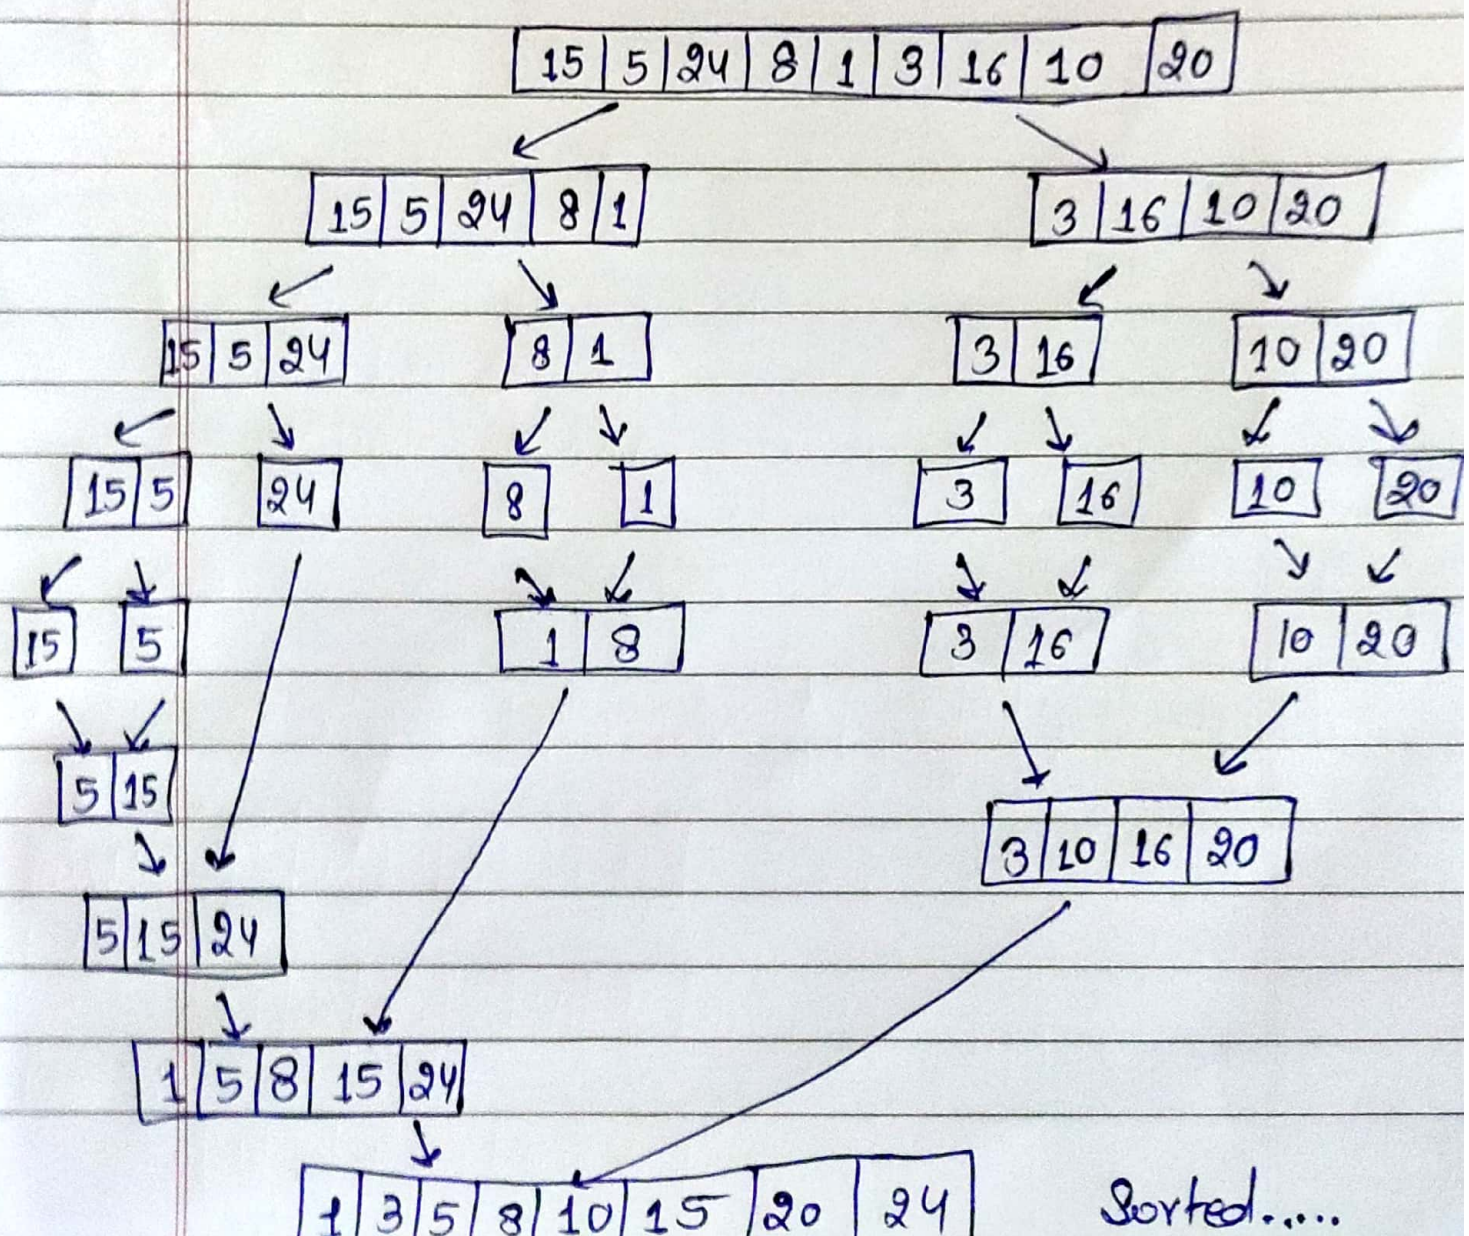 15 5 24 8 1 3 16 10 20
15 5 24 8 1 3 16 10 20
15 5 24 8 1 3 16 10 20
15 5 24 8 1 3 16 10 20
15 5 1 8 3 16 10 20
5 15 3 10 16 20
5 15 24
1 5 8 15 24
1 3 5 8 10 15 20 24 Sorted.....